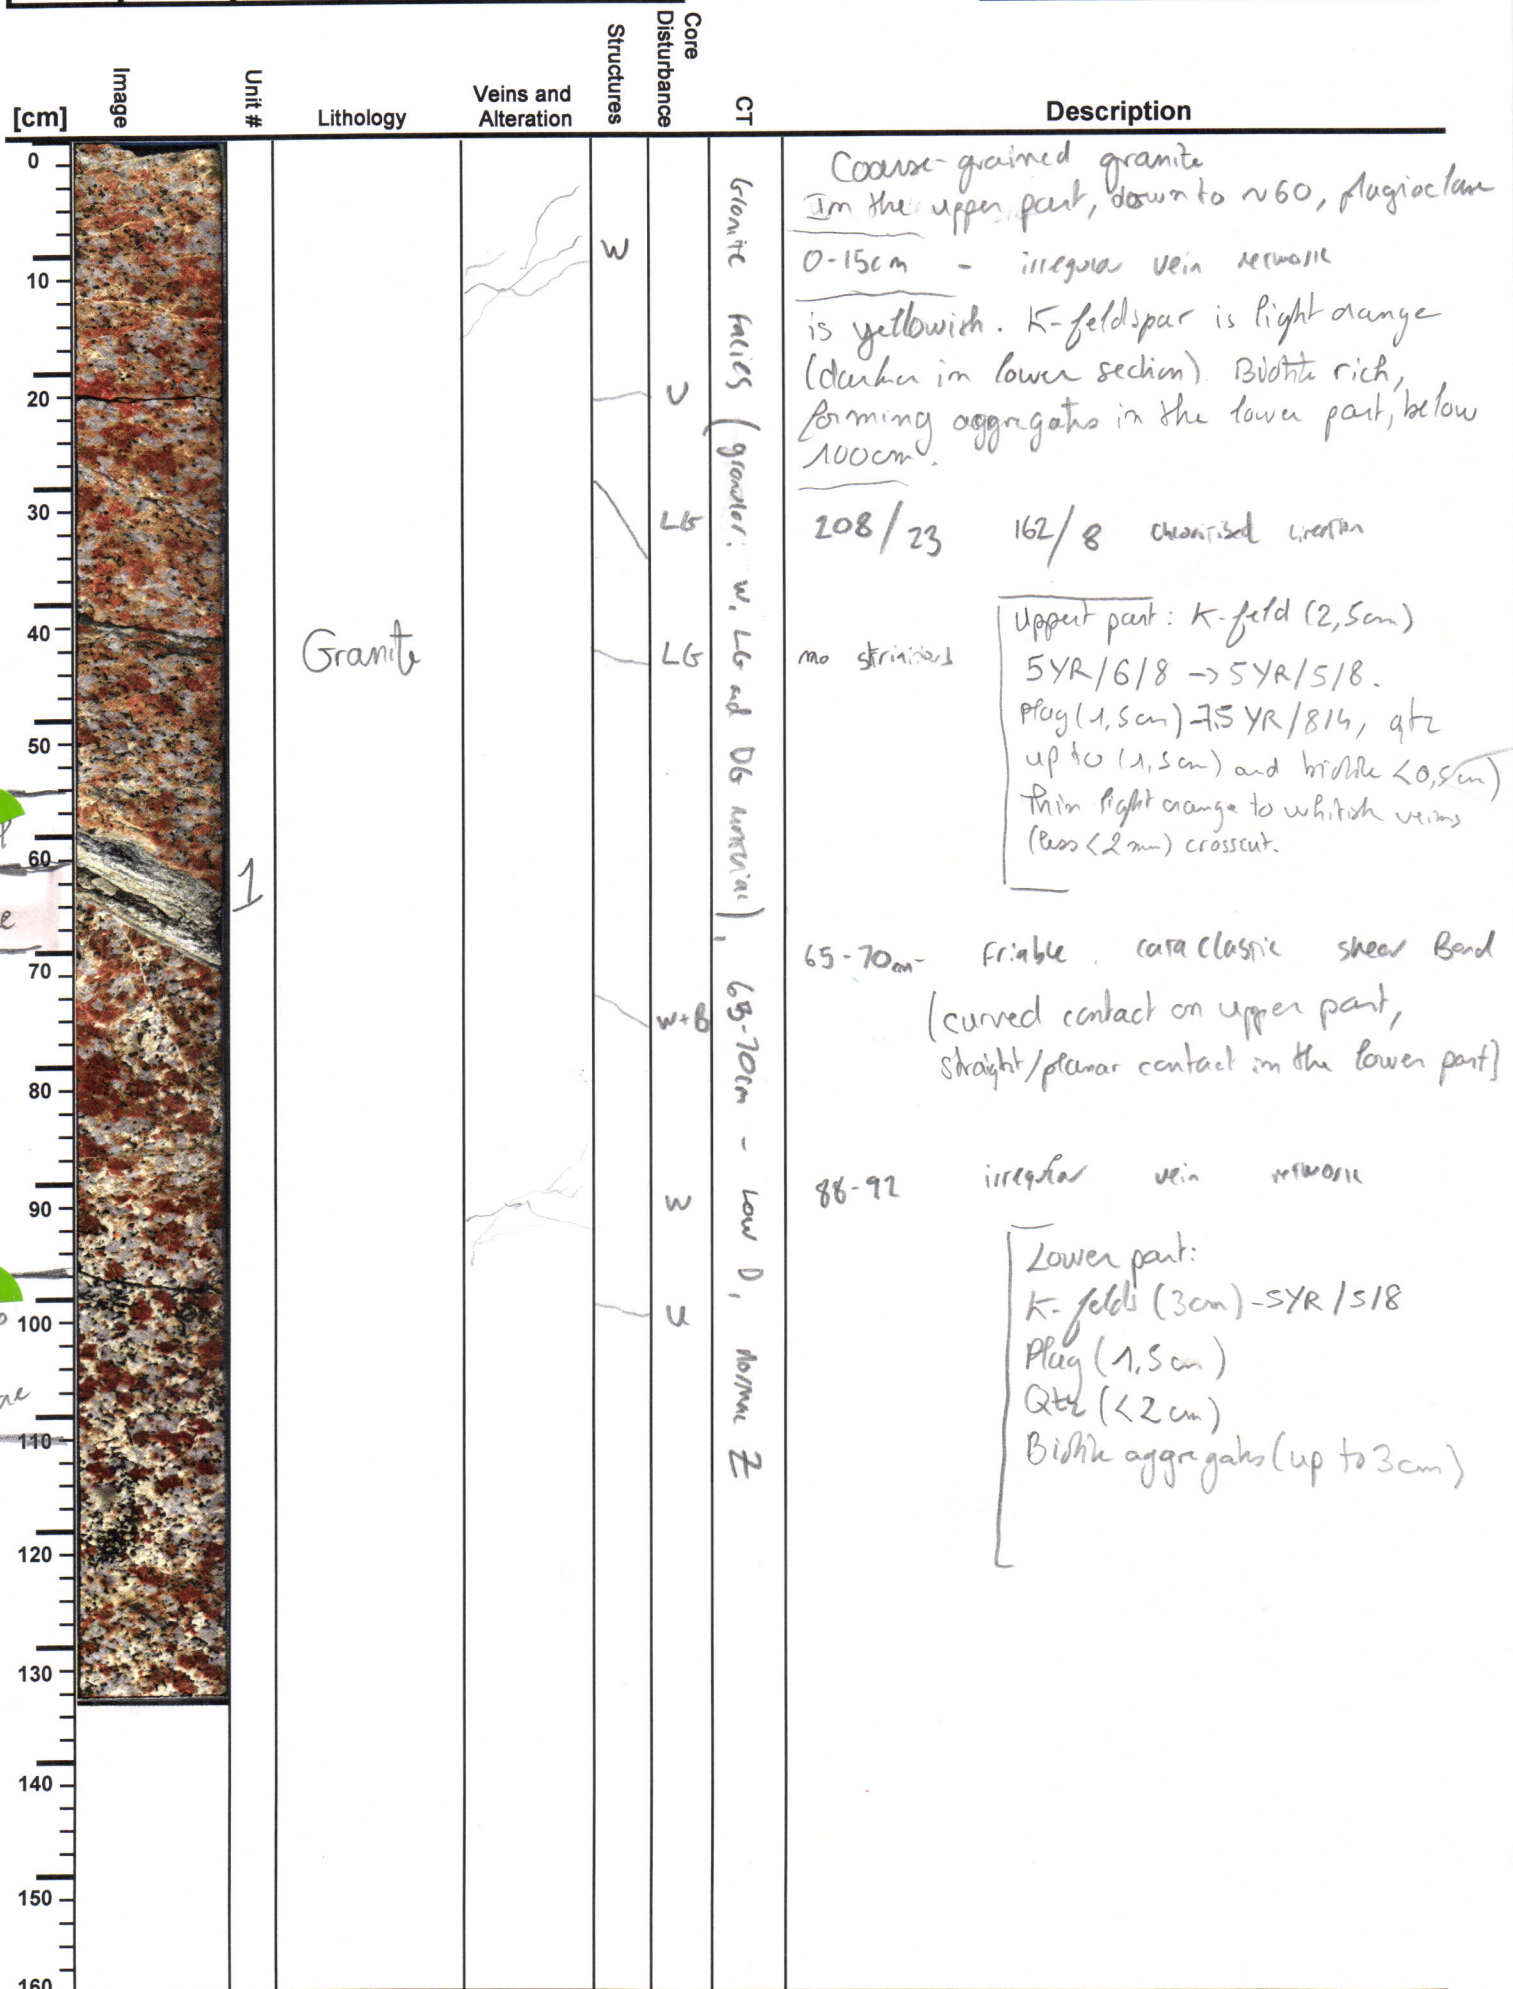 [cm]
Image
Unit #
Lithology
Veins and
Alteration
Structures
Core
Disturbance
CT
Description
0
10
20
30
40
50
60
70
80
90
100
110
120
130
140
150
160
1
Granite
W
U
LG
LG
W+B
W
U
Granite facies (granular: W, LG and DG material), 65-70cm - Low D, normal Z
Coarse-grained granite
In the upper part, down to ~60, plagioclase
0-15cm - irregular vein network
is yellowish. K-feldspar is light orange
(darker in lower section). Biotite rich,
forming aggregates in the lower part, below
100cm.
208/23 162/8
no
Uppert part: K-feld (2,5cm)
5YR/6/8 -> 5YR/5/8.
Plag (1,5cm) -7.5 YR/8/4, qtz
up to (1,5cm) and biotite <0,5cm)
Thin light orange to whitish veins
(less <2mm) crosscut.
65-70cm- Friable, cataclastic shear Band
(curved contact on upper part,
straight/planar contact in the lower part)
88-92 irregular vein network
Lower part:
K-felds (3cm) -5YR/5/8
Plag (1,5cm)
Qtz (<2cm)
Biotite aggregates (up to 3cm)